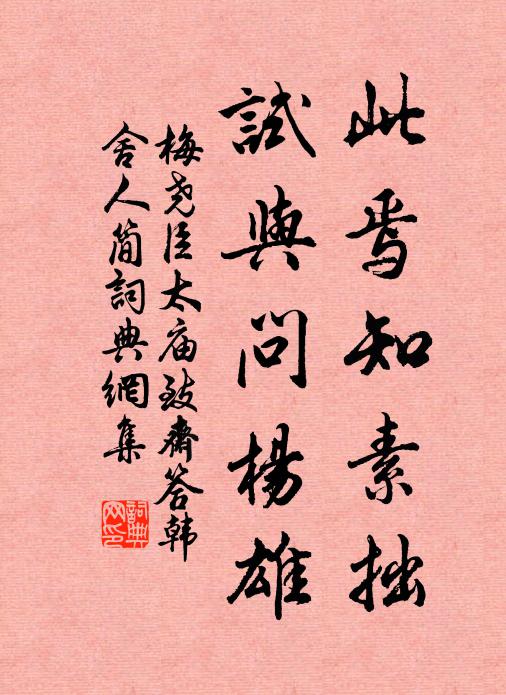 此焉知素拙
試與問楊雄
梅尧臣太庙致齋答韩
舍人简詞典網集
詞典
网印